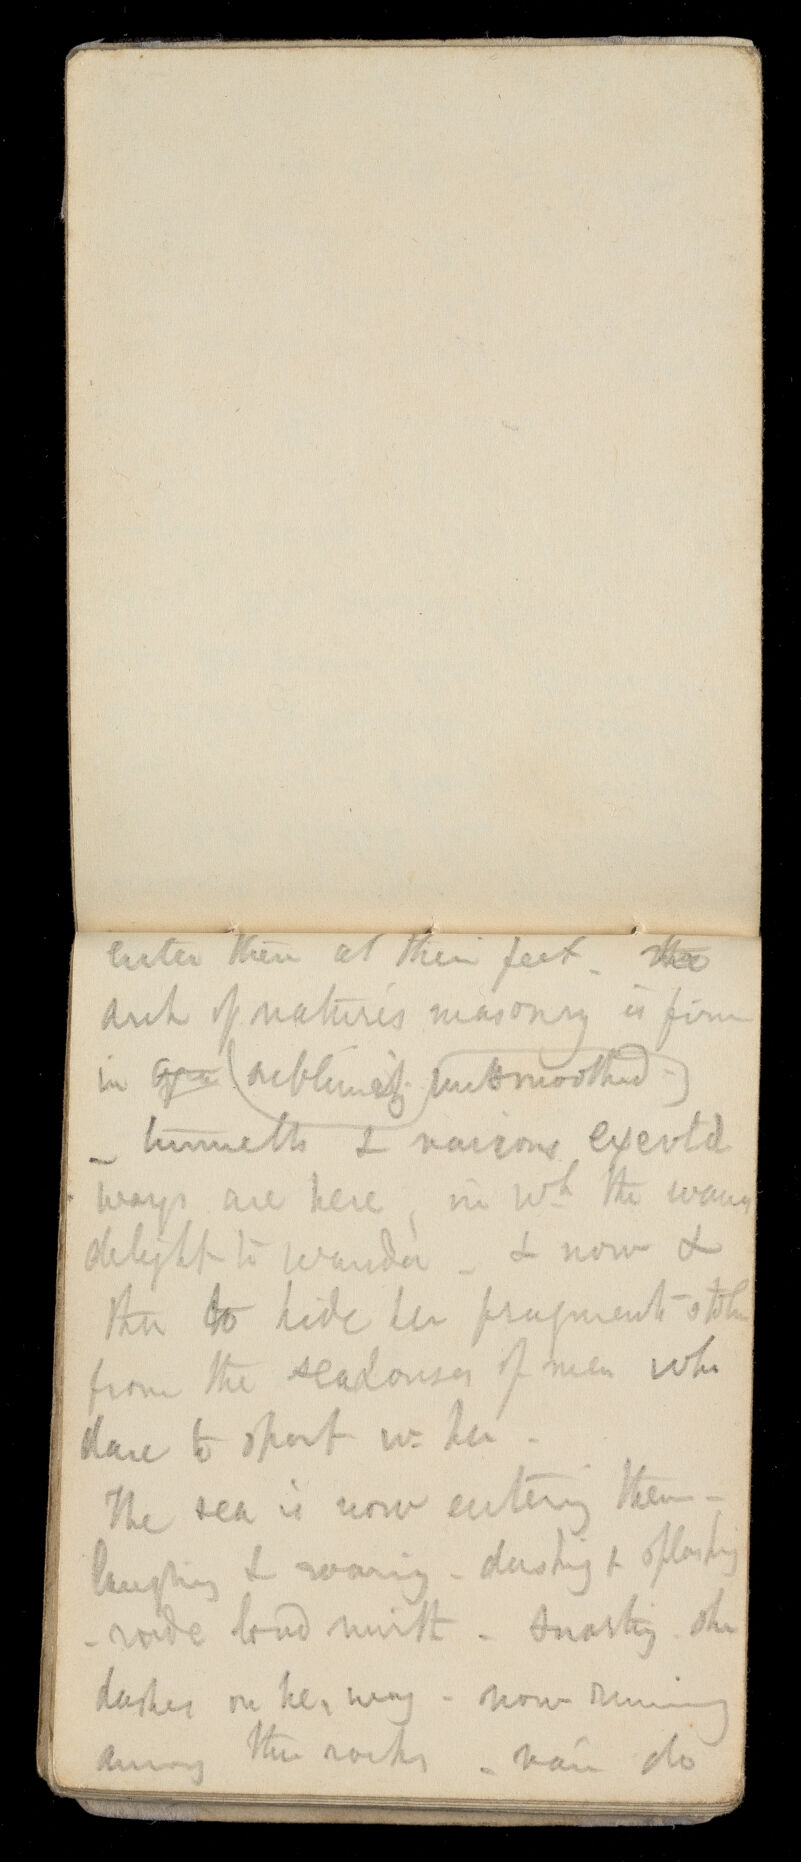 enter then at their feet - the
arch of nature's masonry is firm
in (sublimity unsmoothed -)
- tunnells & various
ways are here, in wh the waves
delight to wander - & now &
then to hide her fragments stolen
from the of men who
dare to sport w. her -
The sea is now entering them -
laughing & roaring - dashing & splashing
- rude loud mirth - she
dashes on her way - now running
among the rocks - vain do